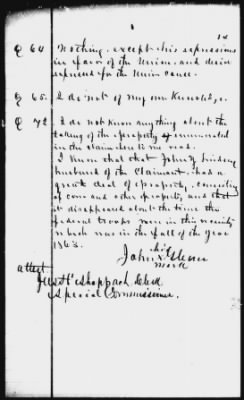 14
Q 64 Nothing except his expressions
in favor of the Union, and desire
expressed for the Union cause.
Q 65. I do not of my own Knowledge.
Q 72. I do not know anything about the
taking of the property enumerated
in the claim here to me read.
I know that that John Y. Lindsey
husband of the Claimant had a
great deal of property, consisting
of corn and other property and that
it disappeared about the time the
federal troops were in this vicinity
which was in the fall of the year
1863.
his
John X
mark
attest
Sheppard
Special Commissioner.